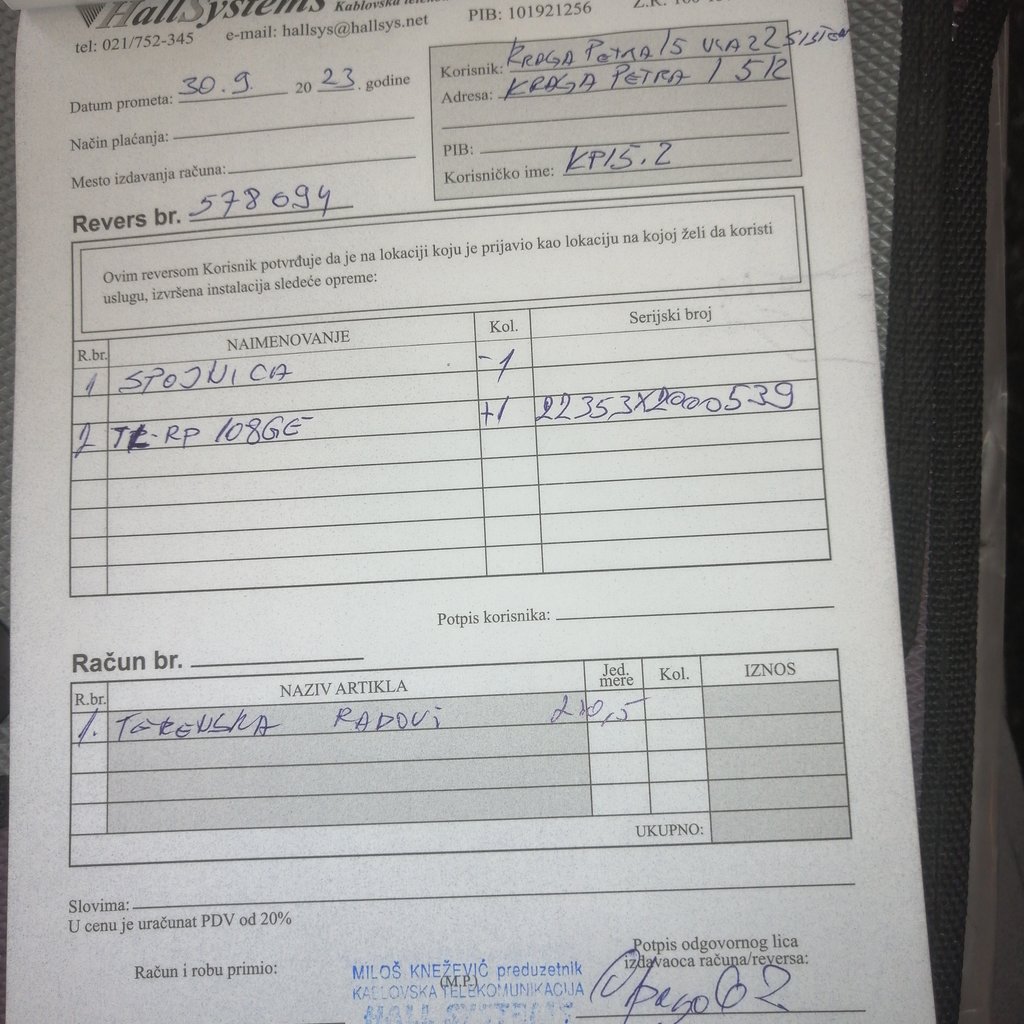 HallSystems
tel: 021/752-345 e-mail: hallsys@hallsys.net PIB: 101921256
Datum prometa: 30.9. 20 23. godine
Način plaćanja:
Mesto izdavanja računa:
Korisnik: KRAGA PETRA 15 ULAZ 2 SISTEM
Adresa: KRAGA PETRA 15
PIB:
Korisničko ime: KP15.2
Revers br. 578094
Ovim reversom Korisnik potvrđuje da je na lokaciji koju je prijavio kao lokaciju na kojoj želi da koristi
uslugu, izvršena instalacija sledeće opreme:
R.br. NAIMENOVANJE Kol. Serijski broj
1 SPOJNICA -1
2 TL-RP 108GE +1 22353X2000539
Potpis korisnika:
Račun br.
R.br. NAZIV ARTIKLA Jed. mere Kol. IZNOS
1. TERENSKA RADOVI
UKUPNO:
Slovima:
U cenu je uračunat PDV od 20%
Račun i robu primio:
Potpis odgovornog lica
izdavaoca računa/reversa:
(M.P.)
MILOŠ KNEŽEVIĆ preduzetnik
KABLOVSKA TELEKOMUNIKACIJA
HALL SYSTEMS